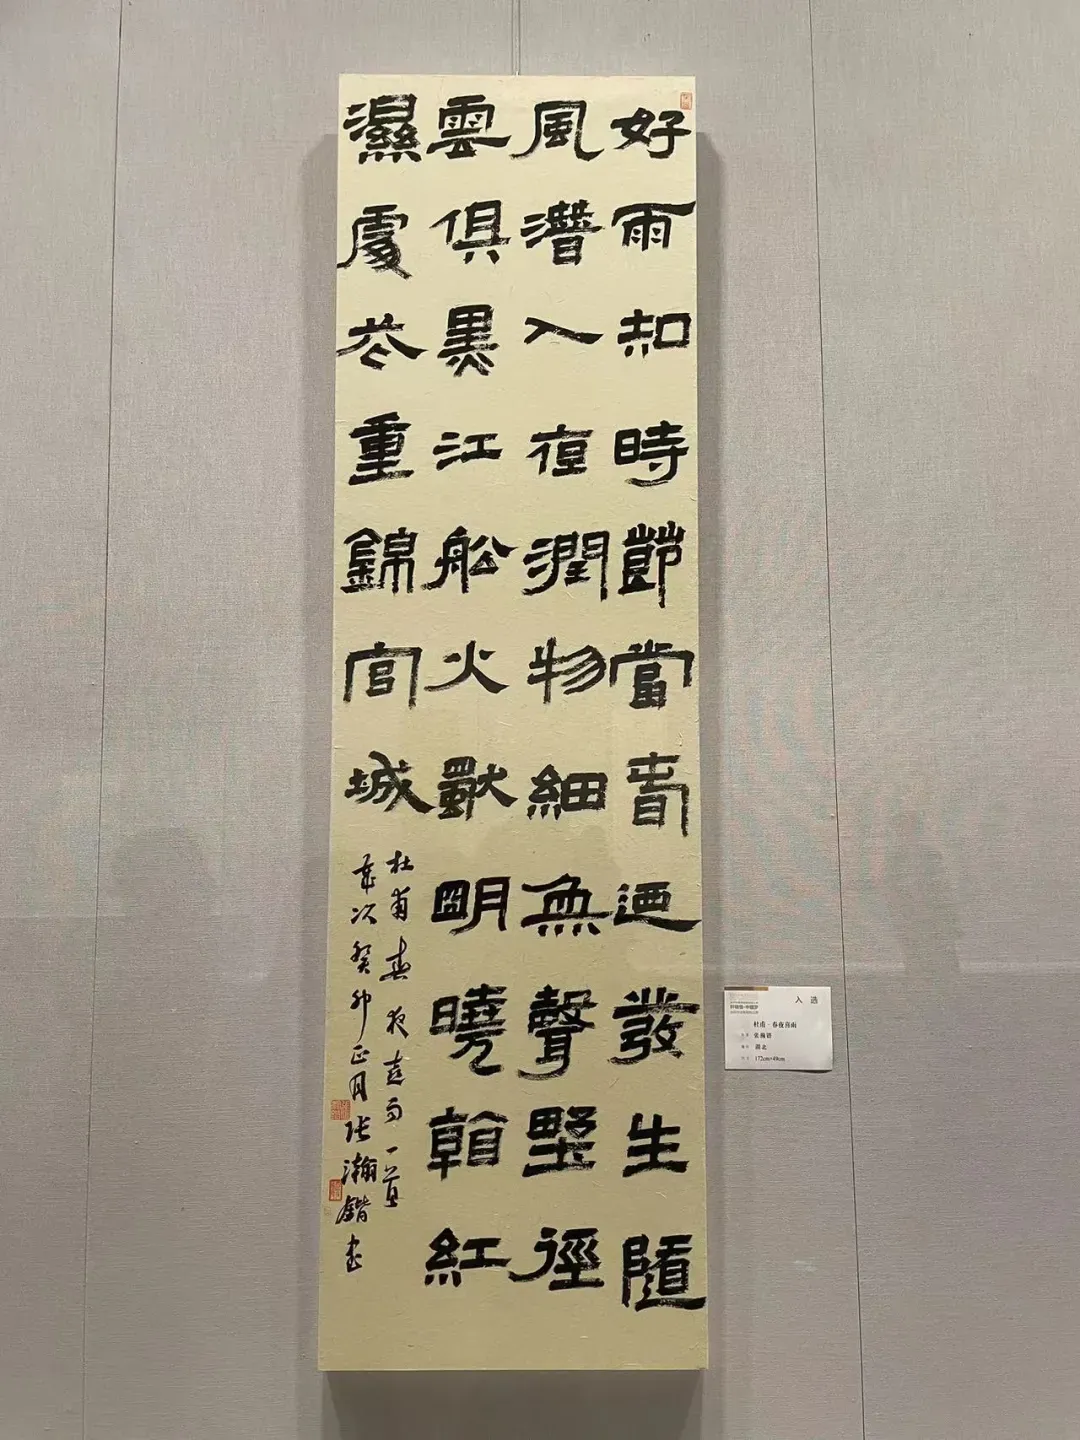 好雨知時節當春迺發生隨
風潛入夜潤物細無聲野徑
雲俱黑江船火獨明曉看紅
濕處花重錦官城
杜甫春夜喜雨一首
歲次癸卯正月張瀚鍇書
入选
杜甫·春夜喜雨
张瀚锴
湖北
172cm×49cm